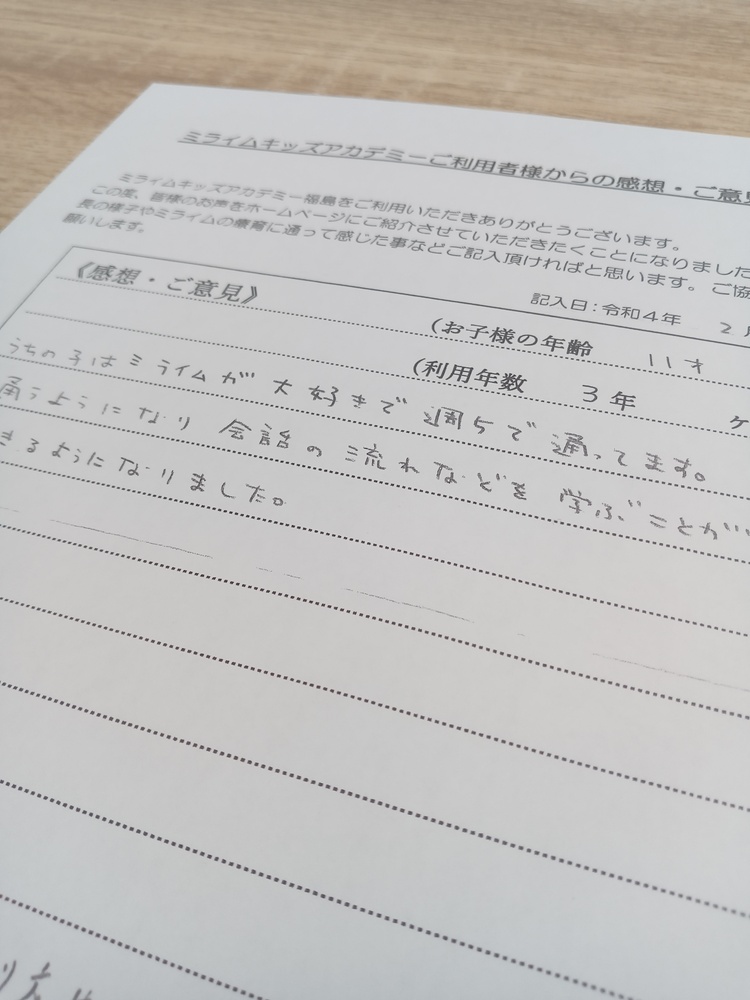 ミライムキッズアカデミーご利用者様からの感想・ご意見
ミライムキッズアカデミー福島をご利用いただきありがとうございます。
この度、皆様のお声をホームページにご紹介させていただきたくことになりました
長の様子やミライムの療育に通って感じた事などご記入頂ければと思います。ご協
願いします。
記入日：令和4年 2月
《感想・ご意見》
(お子様の年齢 11才
(利用年数 3年 ケ
うちの子はミライムが大好きで週5で通ってます。
通うようになり会話の流れなどを学ぶことが
きるようになりました。